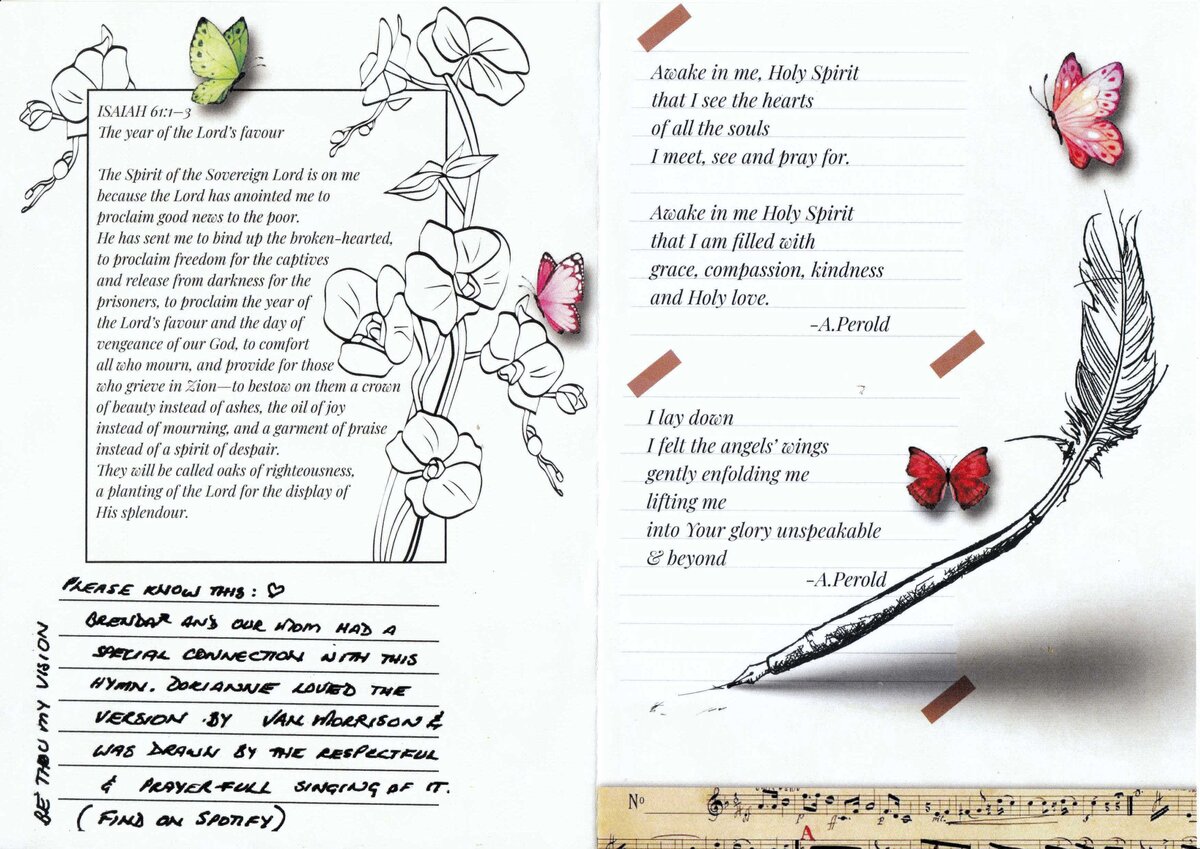 ISAIAH 61:1–3
The year of the Lord's favour
The Spirit of the Sovereign Lord is on me
because the Lord has anointed me to
proclaim good news to the poor.
He has sent me to bind up the broken-hearted,
to proclaim freedom for the captives
and release from darkness for the
prisoners, to proclaim the year of
the Lord's favour and the day of
vengeance of our God, to comfort
all who mourn, and provide for those
who grieve in Zion—to bestow on them a crown
of beauty instead of ashes, the oil of joy
instead of mourning, and a garment of praise
instead of a spirit of despair.
They will be called oaks of righteousness,
a planting of the Lord for the display of
His splendour.
PLEASE KNOW THIS: ♡
AND OUR MOM HAD A
SPECIAL CONNECTION WITH THIS
HYMN. DORIANNE LOVED THE
VERSION BY VAN MORRISON &
WAS DRAWN BY THE RESPECTFUL
& PRAYER-FULL SINGING OF IT.
(FIND ON SPOTIFY)
BE THOU MY VISION
Awake in me, Holy Spirit
that I see the hearts
of all the souls
I meet, see and pray for.
Awake in me Holy Spirit
that I am filled with
grace, compassion, kindness
and Holy love.
-A.Perold
I lay down
I felt the angels' wings
gently enfolding me
lifting me
into Your glory unspeakable
& beyond
-A.Perold
No
A